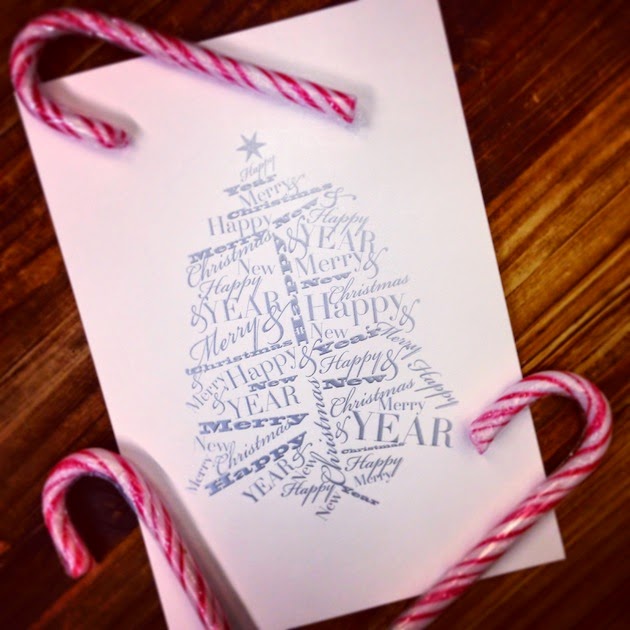 Happy
Year
Merry &
Christmas
Happy New &
Merry & Happy
Christmas YEAR
New Happy Merry &
Happy New
& YEAR Christmas
Merry & Happy &
Christmas New Year Merry
& Happy & Happy & Happy
Merry New New
& YEAR Christmas
Merry Christmas Merry
New Christmas & YEAR
Merry Happy Christmas
YEAR & New Happy
Happy Merry
New Year